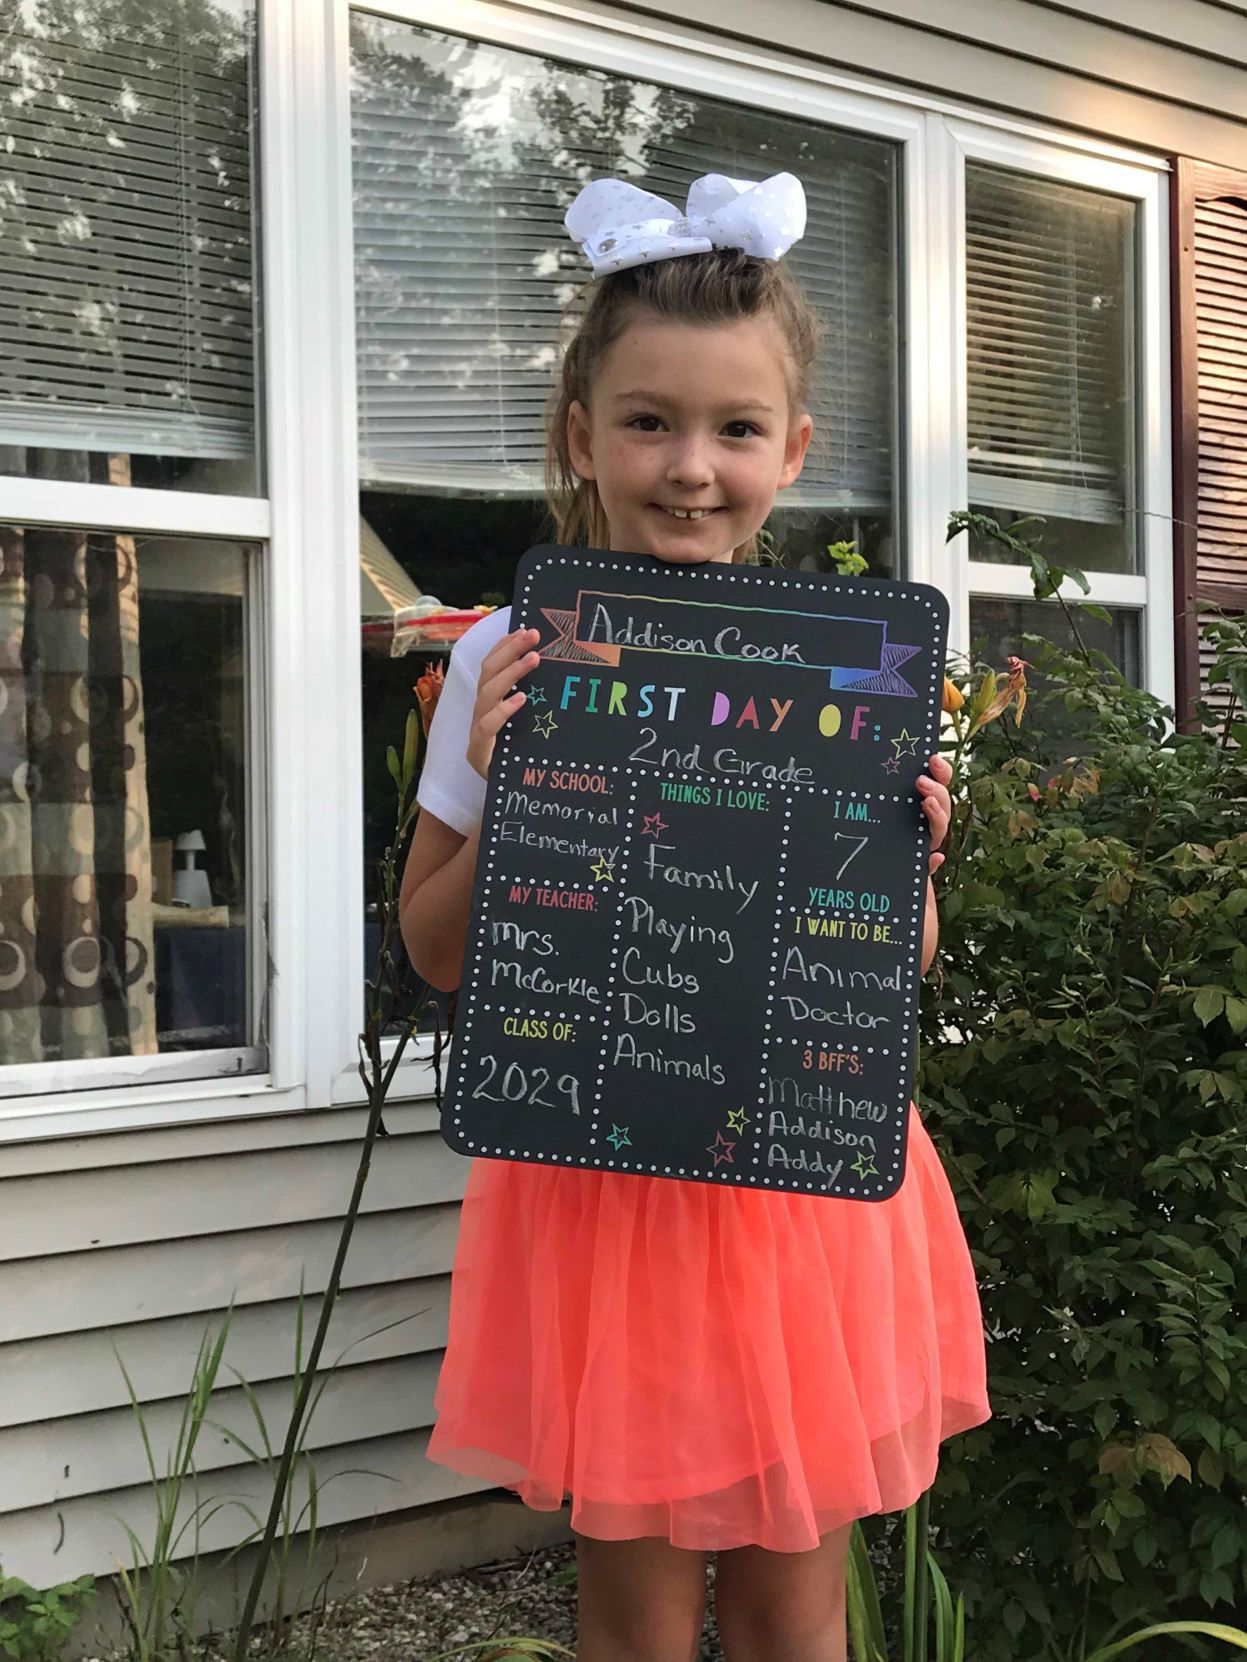 Addison Cook
FIRST DAY OF:
2nd Grade
MY SCHOOL:
Memorial
Elementary
MY TEACHER:
Mrs.
McCorkle
CLASS OF:
2029
THINGS I LOVE:
Family
Playing
Cubs
Dolls
Animals
I AM...
7
YEARS OLD
I WANT TO BE...
Animal
Doctor
3 BFF'S:
Matthew
Addison
Addy